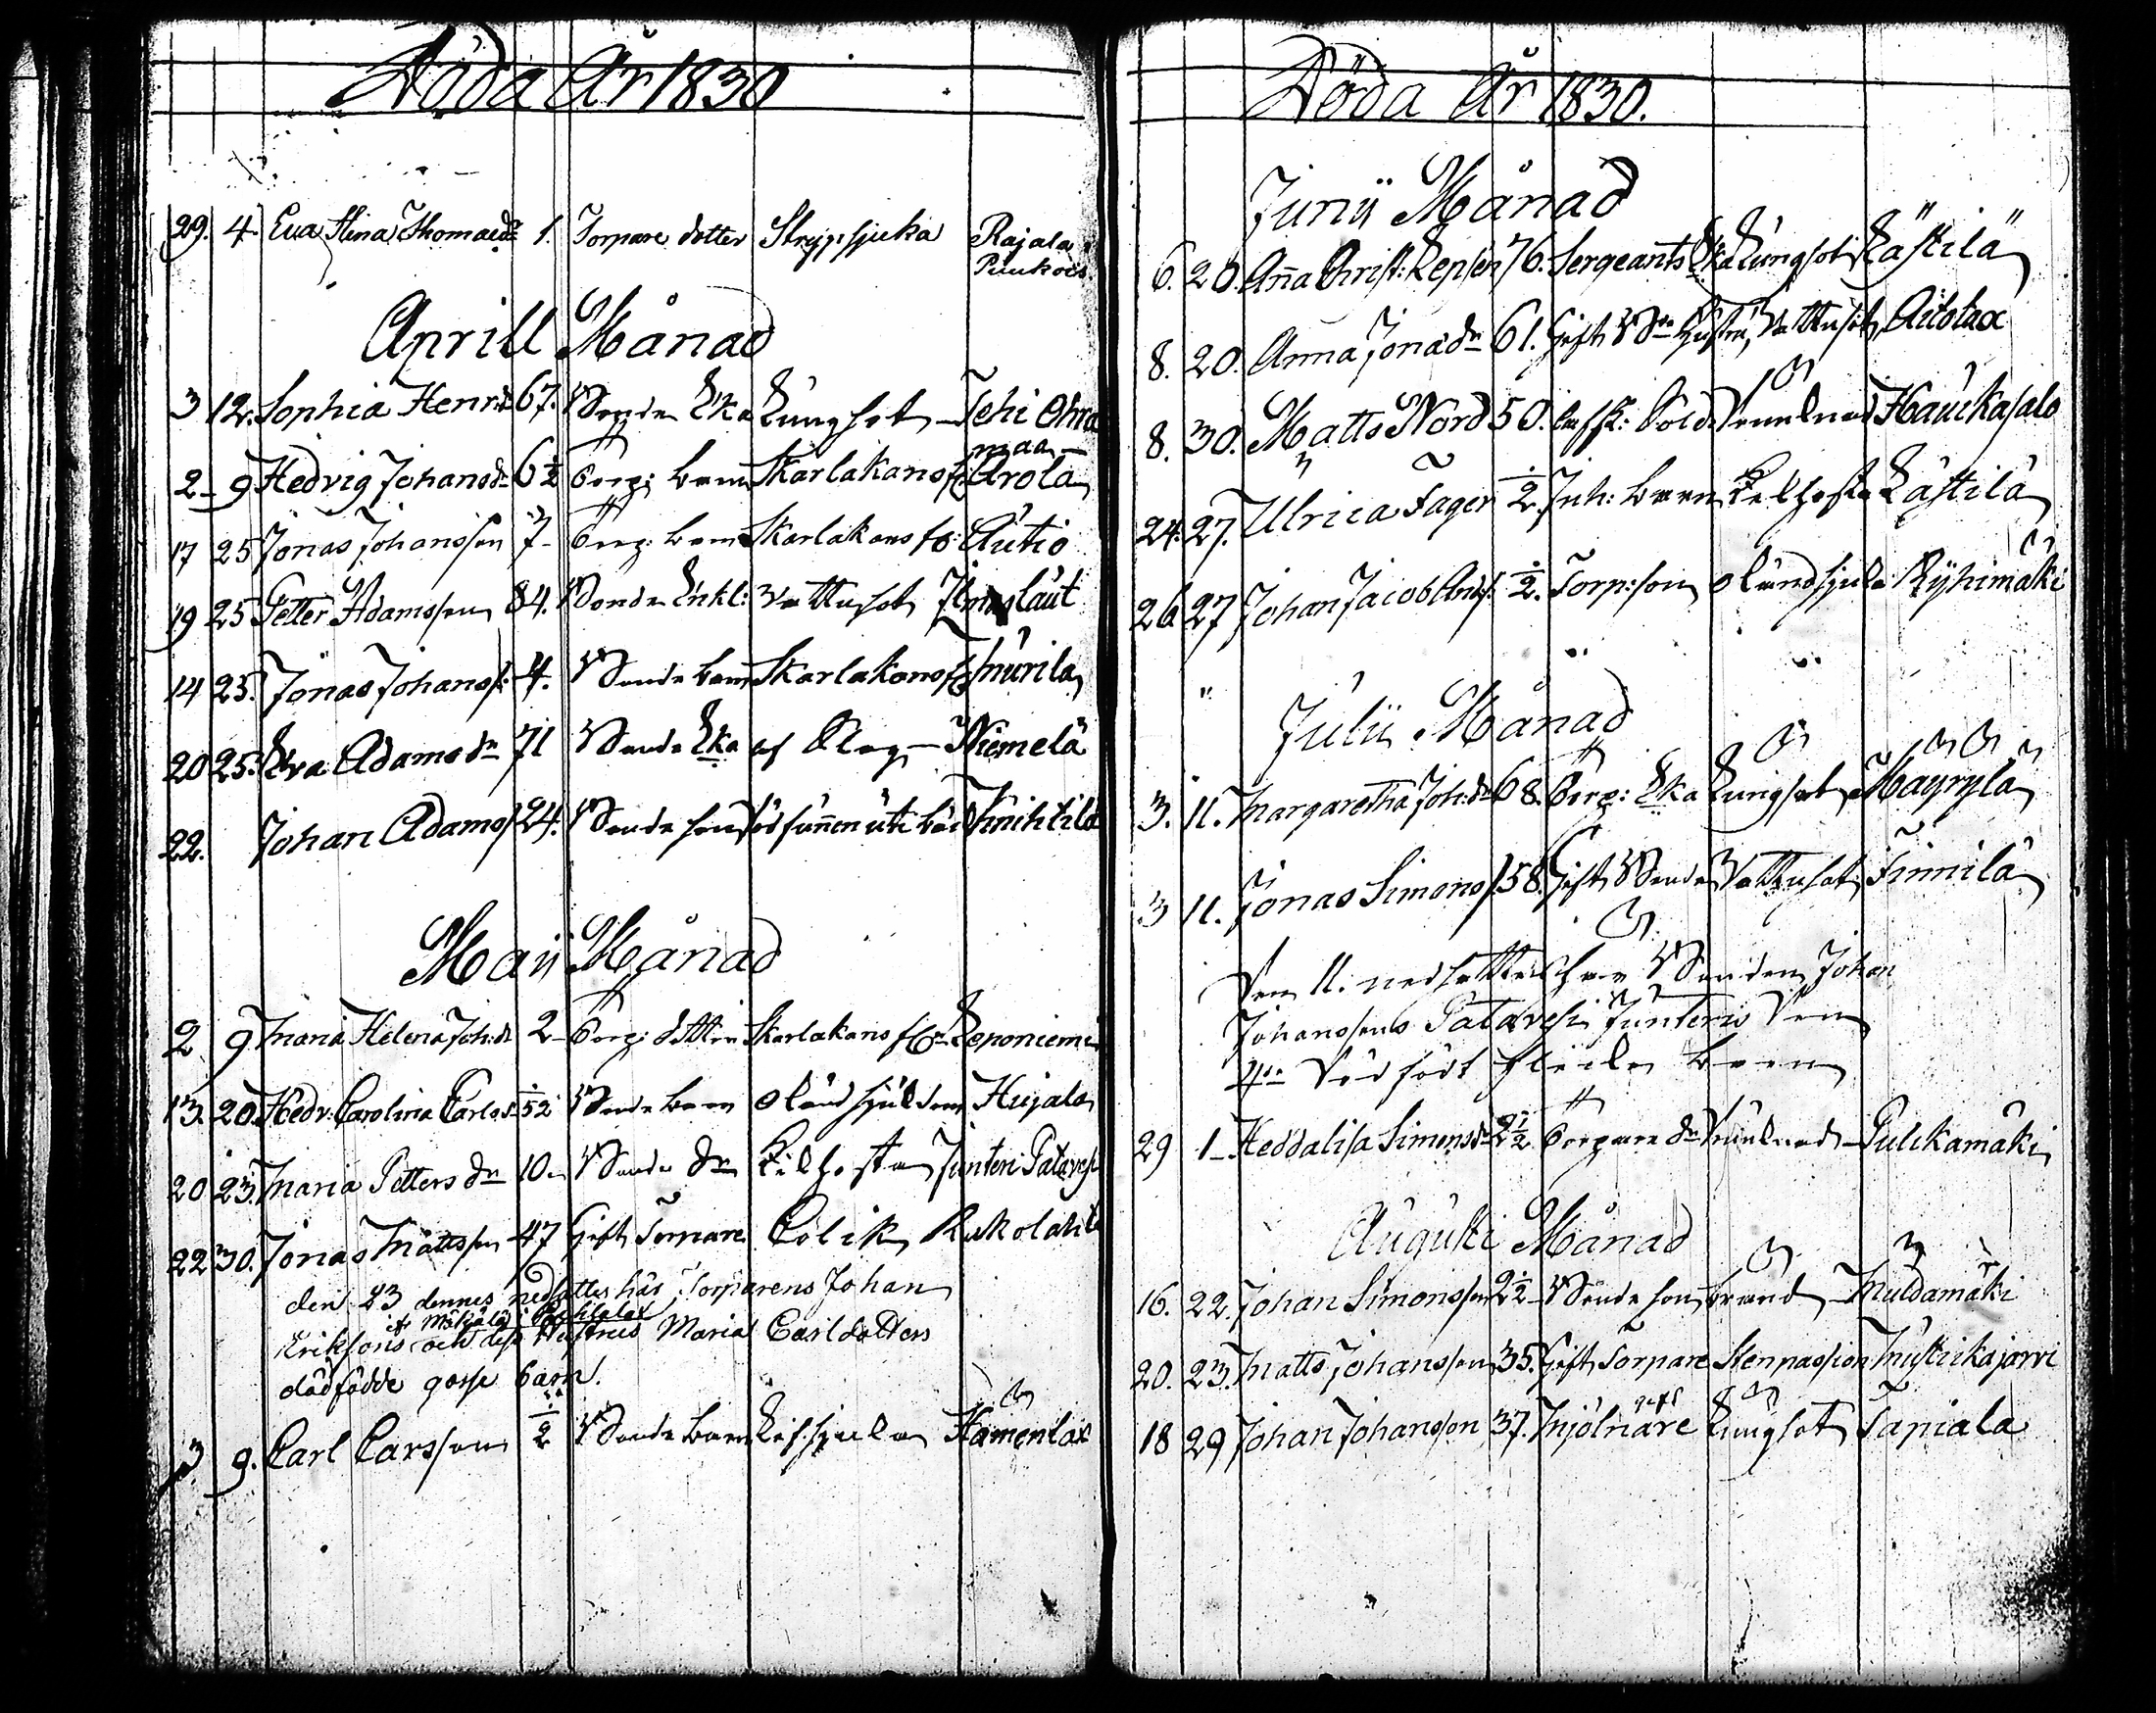 Döda År 1830
29. 4. Eva Stina Thomaedr 1. Torpare dotter Stryp: sjuka Rajala
Puukois
Aprill Månad
3 12. Sophia Henrd 67. Bonde Eka Lungsot Tehi Oma
maa
2 9 Hedvig Johansdr 6 1/2 Torp: barn Skarlakans f. Arola
17 25 Jonas Johansson 7 Torp: barn Skarlakans fb: Autio
19 25 Petter Adamsson 84. Bonde Enkl: Vattusot
14 25. Jonas Johanss: 4. Bonde barn Skarlakans fb Murila
20 25. Eva Adamsdr 71 Bonde Eka af Slag Niemelä
22. Johan Adams 24. Bonde son funnen uti Knihtilä
Maji Månad
2 9 Maria Helena Joh:dr 2 Torp: dotter Skarlakans fbr Reponiemi
13. 20. Hedv: Carolina Carlsdr 1/52 Bonde barn oländ sjukdom Hujala
20 23. Maria Petters dr 10. Bonde dr Kikhosta Junteri Patavesi
22 30. Jonas Mattsson 47 Gift Torpare Colik Rukolaht
den 23 dennes nedsattes här Torparens Johan
Eriksons och dess Hustrus Maria Carl dotters
dödfödde gosse barn.
3 9. Carl Carsson 1/2 Bonde barn Hamenlax
Döda År 1830.
Junii Månad
6. 20. Anna Christ: Lepsen 76. Sergeants Eka Lungsot Kästilä
8. 20. Anna Jonædr 61. Gift Bde Hustru, Vattusot Aitolax
8. 30. Matts Nord 50. afsk: Sold: Haukasalo
24. 27. Ulrica Fager 1/2. Inh: barn Kikhosta Kästilä
26 27 Johan Jacob 1/2. Torp: son oländ sjuka Ryhimäki
Julii Månad
3. 11. Margaretha Joh:dr 68. Torp: Eka Lungsot Mäyrylä
3 11. Jonas Simons 58. Gift Bonde Vattusot Finnilä
Den 11. nedsattes här Bonden Johan
Johanssons Patavesi Junteris den
4de död född flicko barn
29 1 Heddalisa Simonsdr 2 1/2 Torpare dr Pulckamäki
Augusti Månad
16. 22. Johan Simonsson 2 1/2 Bonde son Muldamäki
20. 23. Matts Johansson 35. Gift Torpare Stenpassion Mustickajärvi
gift
18 29 Johan Johansson 37. Mjölnare Lungsot Taniala